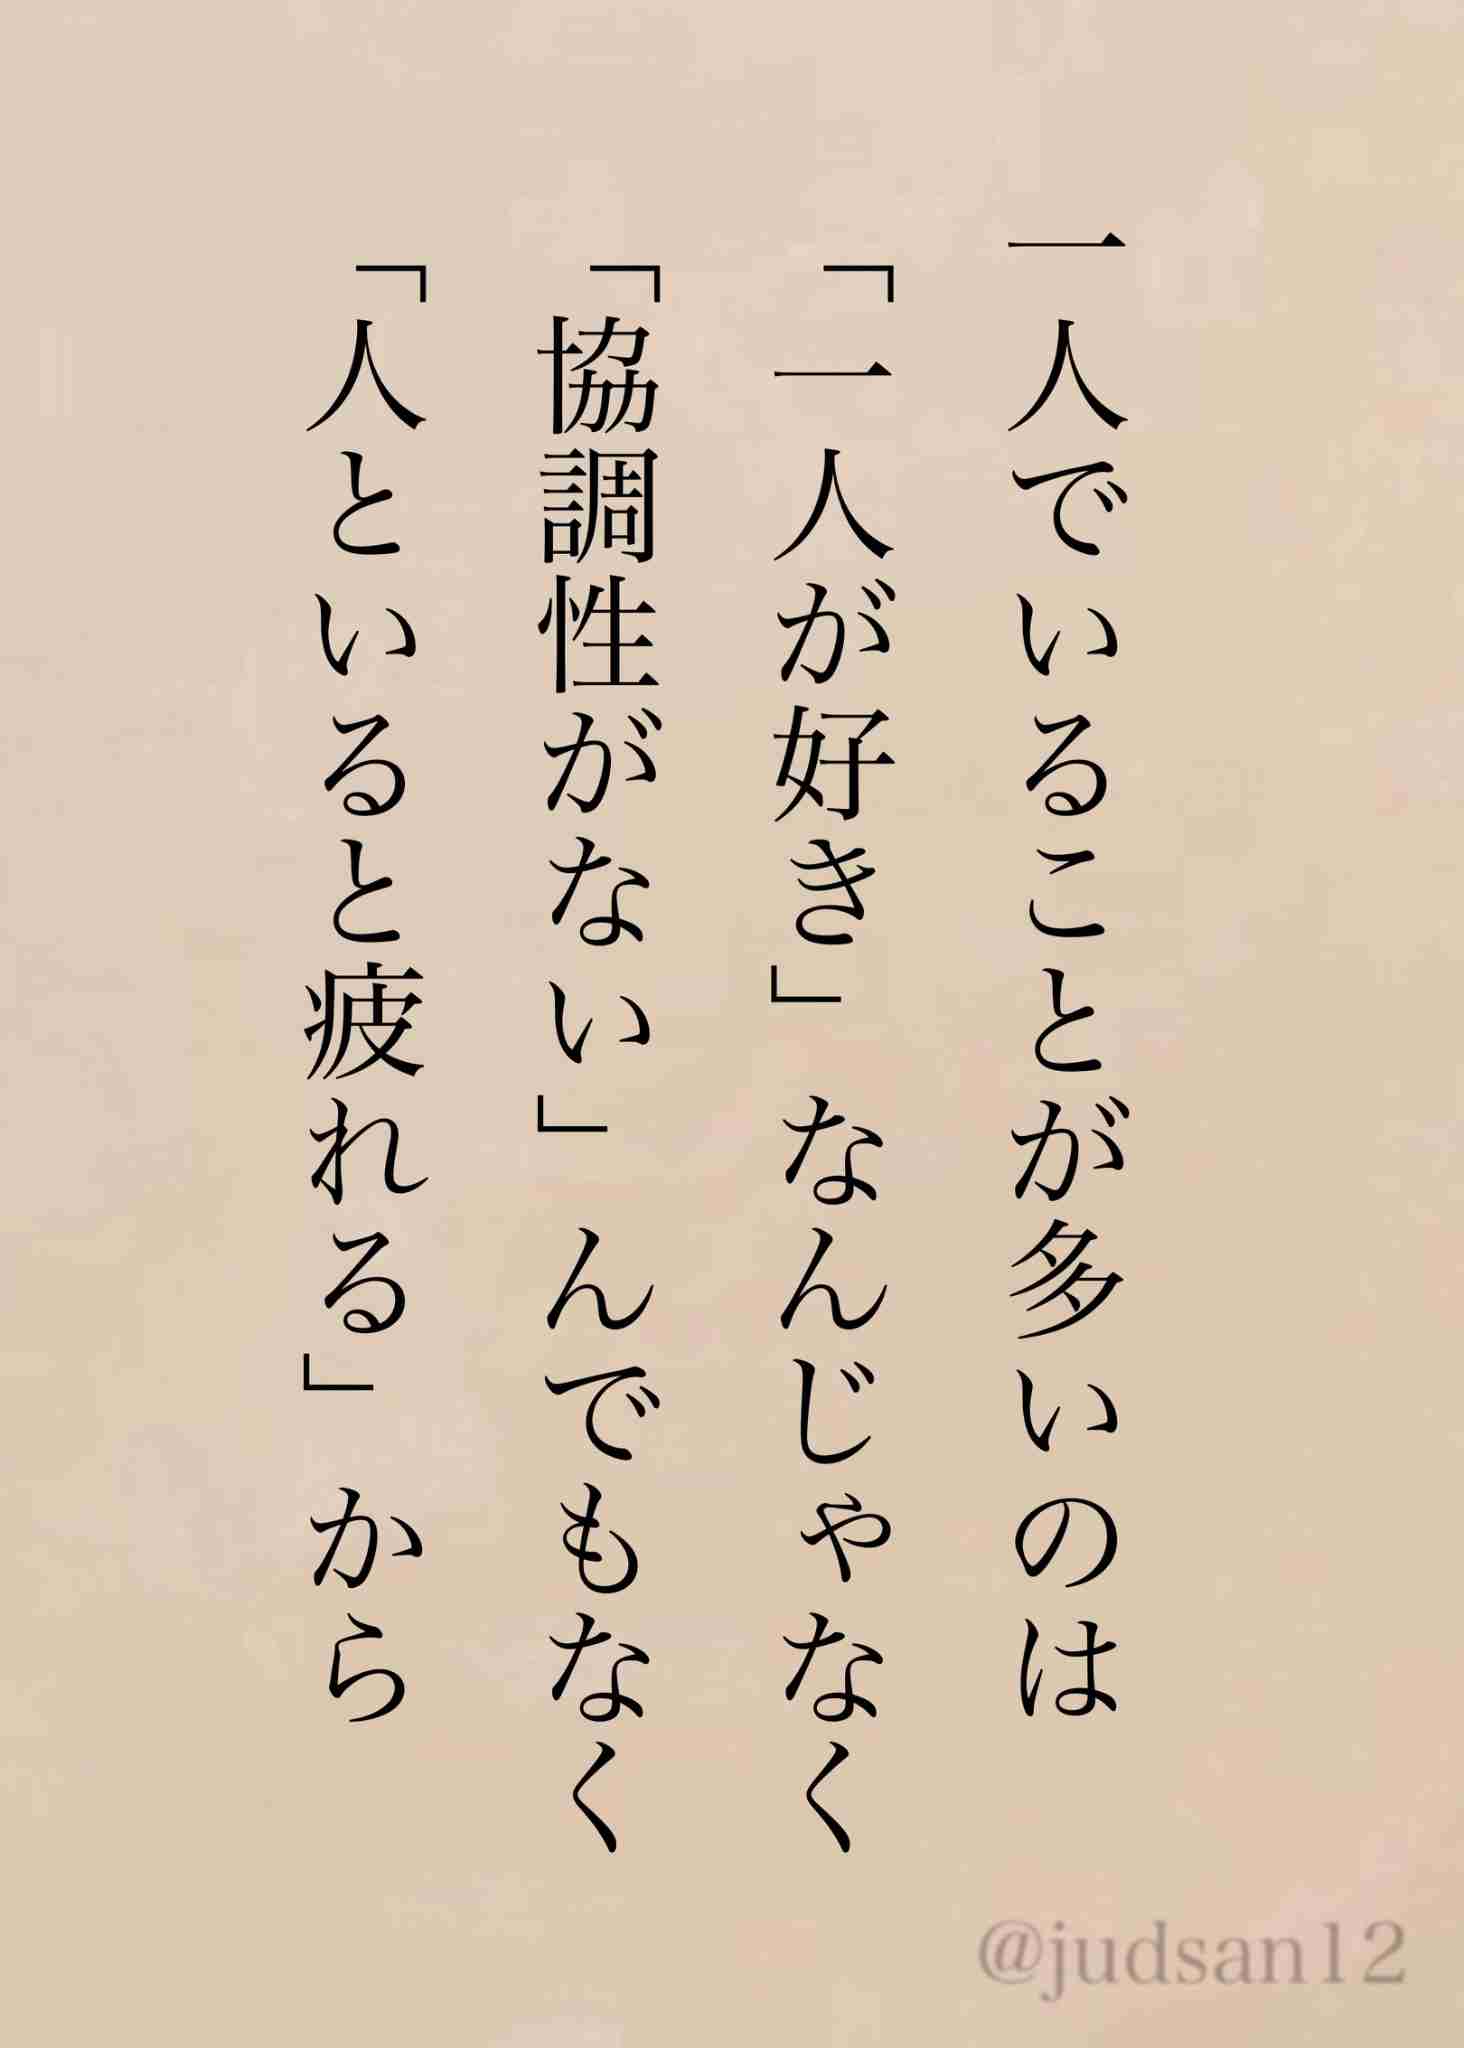 一人でいることが多いのは
「一人が好き」なんじゃなく
「協調性がない」んでもなく
「人といると疲れる」から
@judsan12